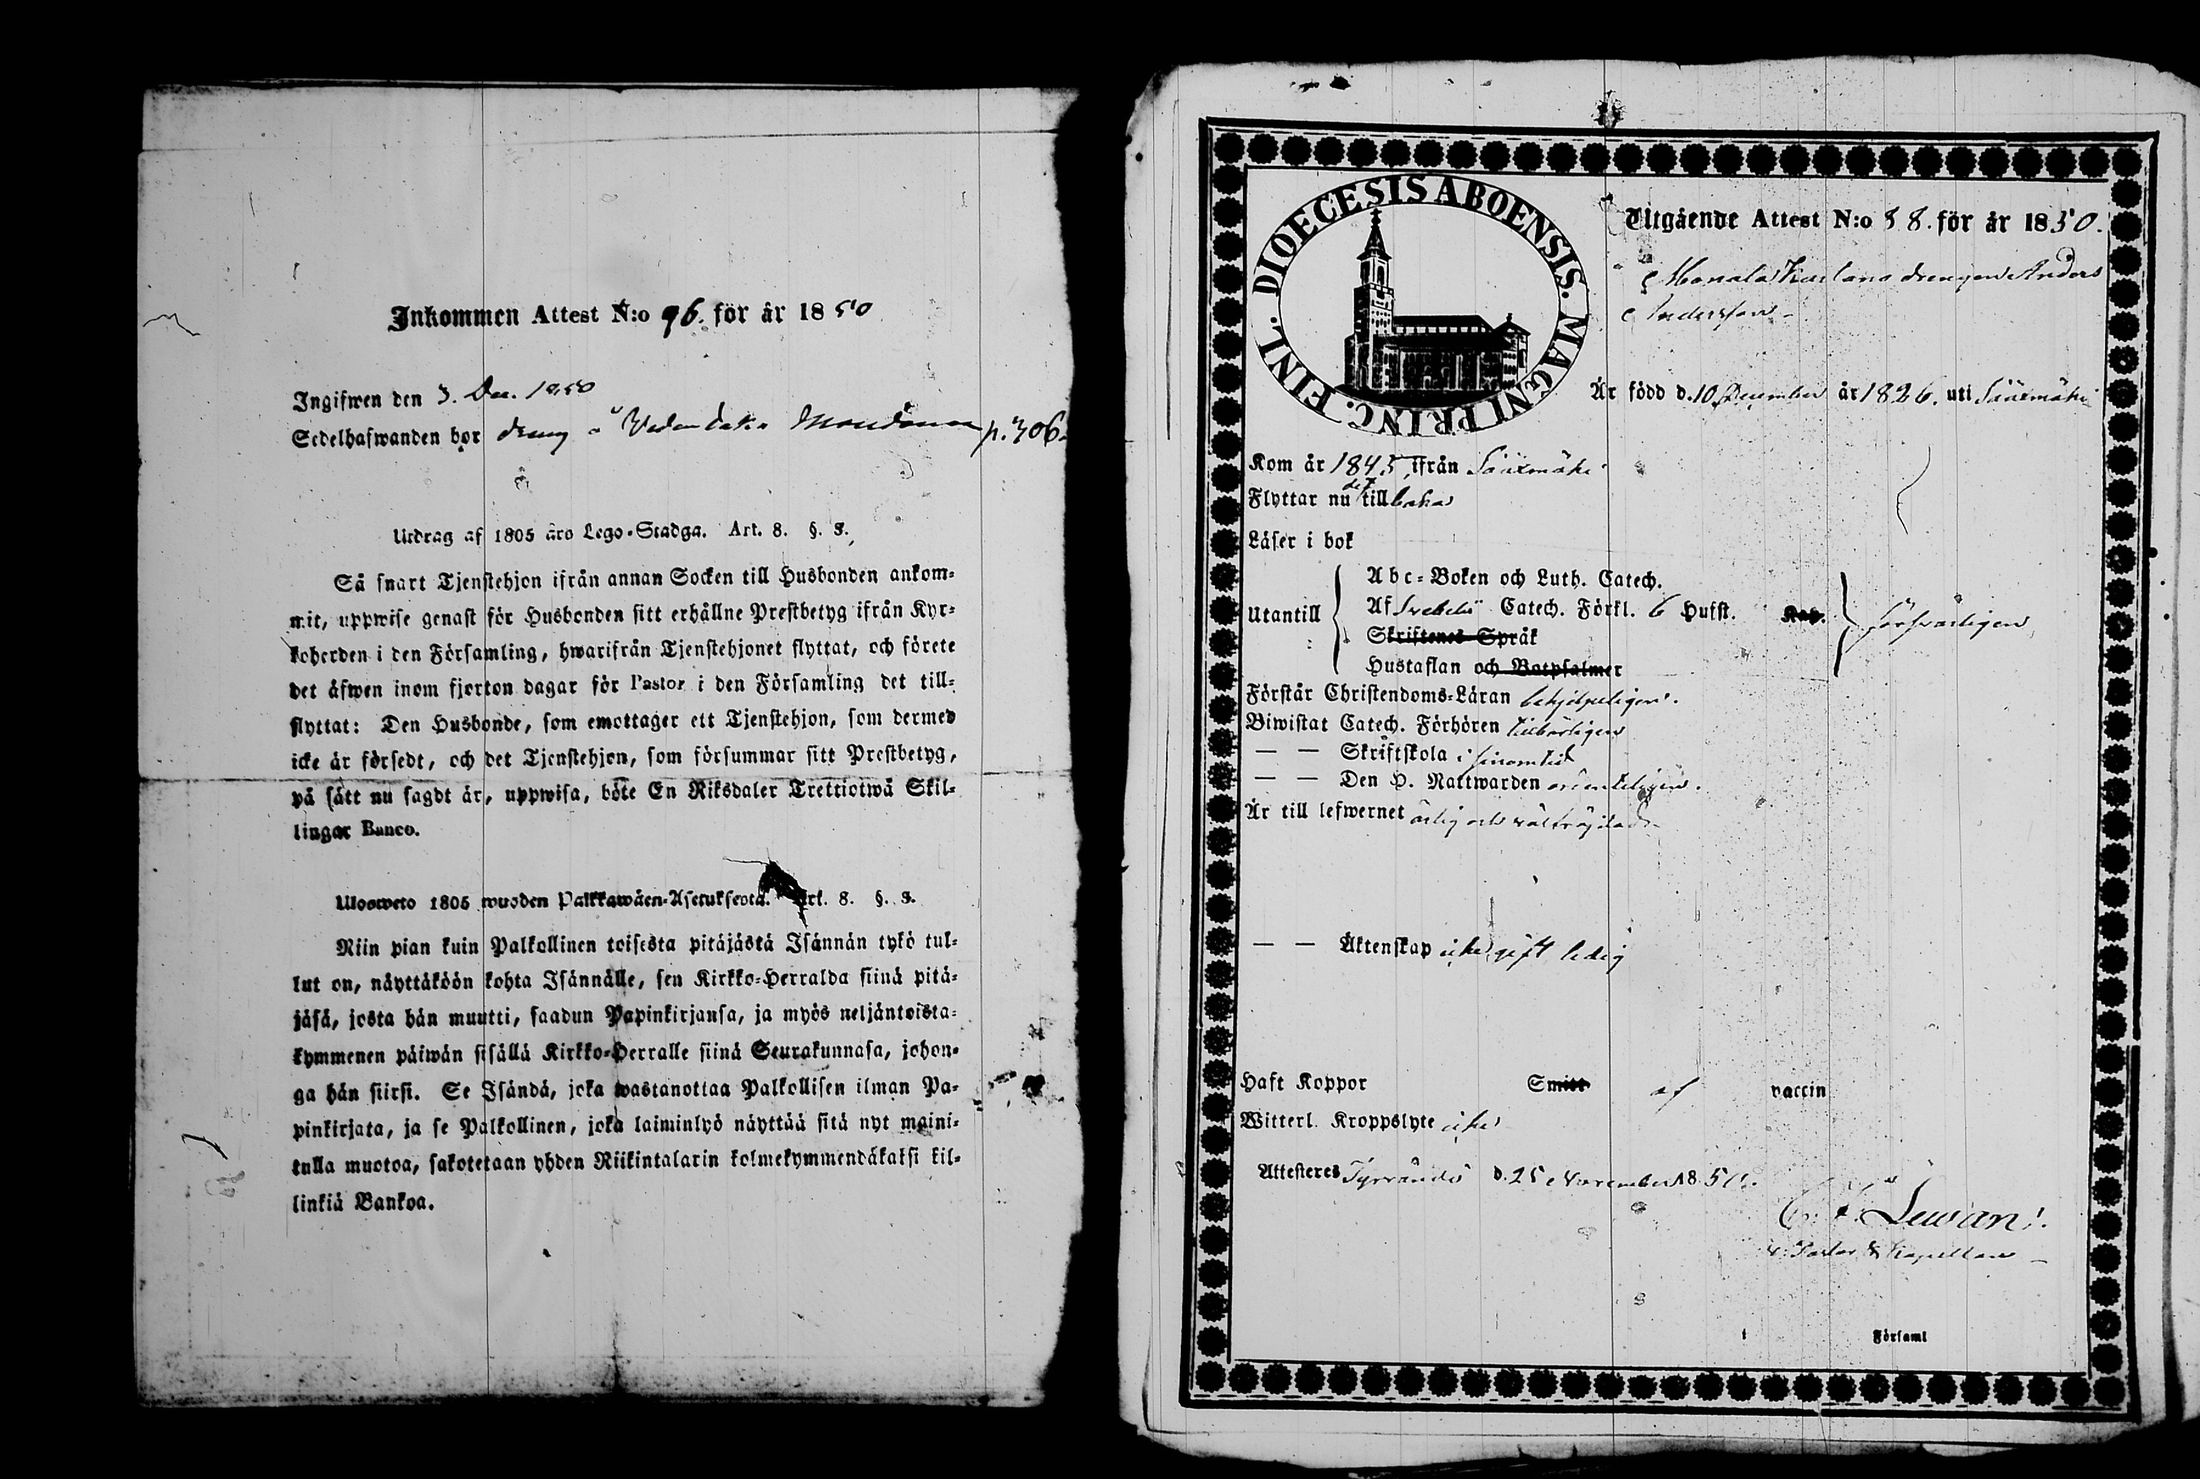 Inkommen Attest N:o 96. för år 1850
Ingifwen den 3. Dec. 1850
Sedelhafwanden bor dräng å p. 306.
Utdrag af 1805 års Lego-Stadga. Art. 8. §. 3.
Så snart Tjenstehjon ifrån annan Socken till Husbonden ankom-
mit, uppwise genast för Husbonden sitt erhållne Prestbetyg ifrån Kyr-
koherden i den Församling, hwarifrån Tjenstehjonet flyttat, och förete
det äfwen inom fjorton dagar för Pastor i den Församling det till-
flyttat: Den Husbonde, som emottager ett Tjenstehjon, som dermed
icke är försedt, och det Tjenstehjon, som försummar sitt Prestbetyg,
på sätt nu sagdt är, uppwisa, böte En Riksdaler Trettiotwå Skil-
lingar Banco.
Ulosweto 1805 wuoden Palkkawäen-Asetuksesta. Art. 8. §. 3.
Niin pian kuin Palkollinen toisesta pitäjästä Isännän tykö tul-
lut on, näyttäköön kohta Isännälle, sen Kirkko-Herralda siinä pitä-
jäsä, josta hän muutti, saadun Papinkirjansa, ja myös neljäntoista-
kymmenen päiwän sisällä Kirkko-Herralle siinä Seurakunnasa, johon-
ga hän siirsi. Se Isändä, joka wastanottaa Palkollisen ilman Pa-
pinkirjata, ja se Palkollinen, joka laiminlyö näyttää sitä nyt maini-
tulla muotoa, sakotetaan yhden Riikintalarin kolmekymmendäkaksi kil-
linkiä Bankoa.
DIOECESIS ABOENSIS. MAGNI PRINC. FINL.
Utgående Attest N:o 88. för år 1850.
drengen Anders
Andersson
Är född d. 10 December år 1826. uti Sääxmäki
Kom år 1845 ifrån Sääxmäki
Flyttar nu dit tillbaka
Läser i bok
Utantill
Abc-Boken och Luth. Catech.
Af Svebelii Catech. Förkl. 6 Hufst. Kap. försvarligen
Skriftenes Språk
Hustaflan och Botpsalmer
Förstår Christendoms-Läran behjelpeligen.
Biwistat Catech. Förhören tillbörligen
— — Skriftskola i sinom tid
— — Den H. Nattwarden ordenteligen.
Är till lefwernet ärlig och välfräjdad
— — Äktenskap icke gift ledig
Haft Koppor Smitt af vaccin
Witterl. Kroppslyte icke
Attesteras Tyrvändö d. 25 November 1850.
Pastor & Kapellan
Församl